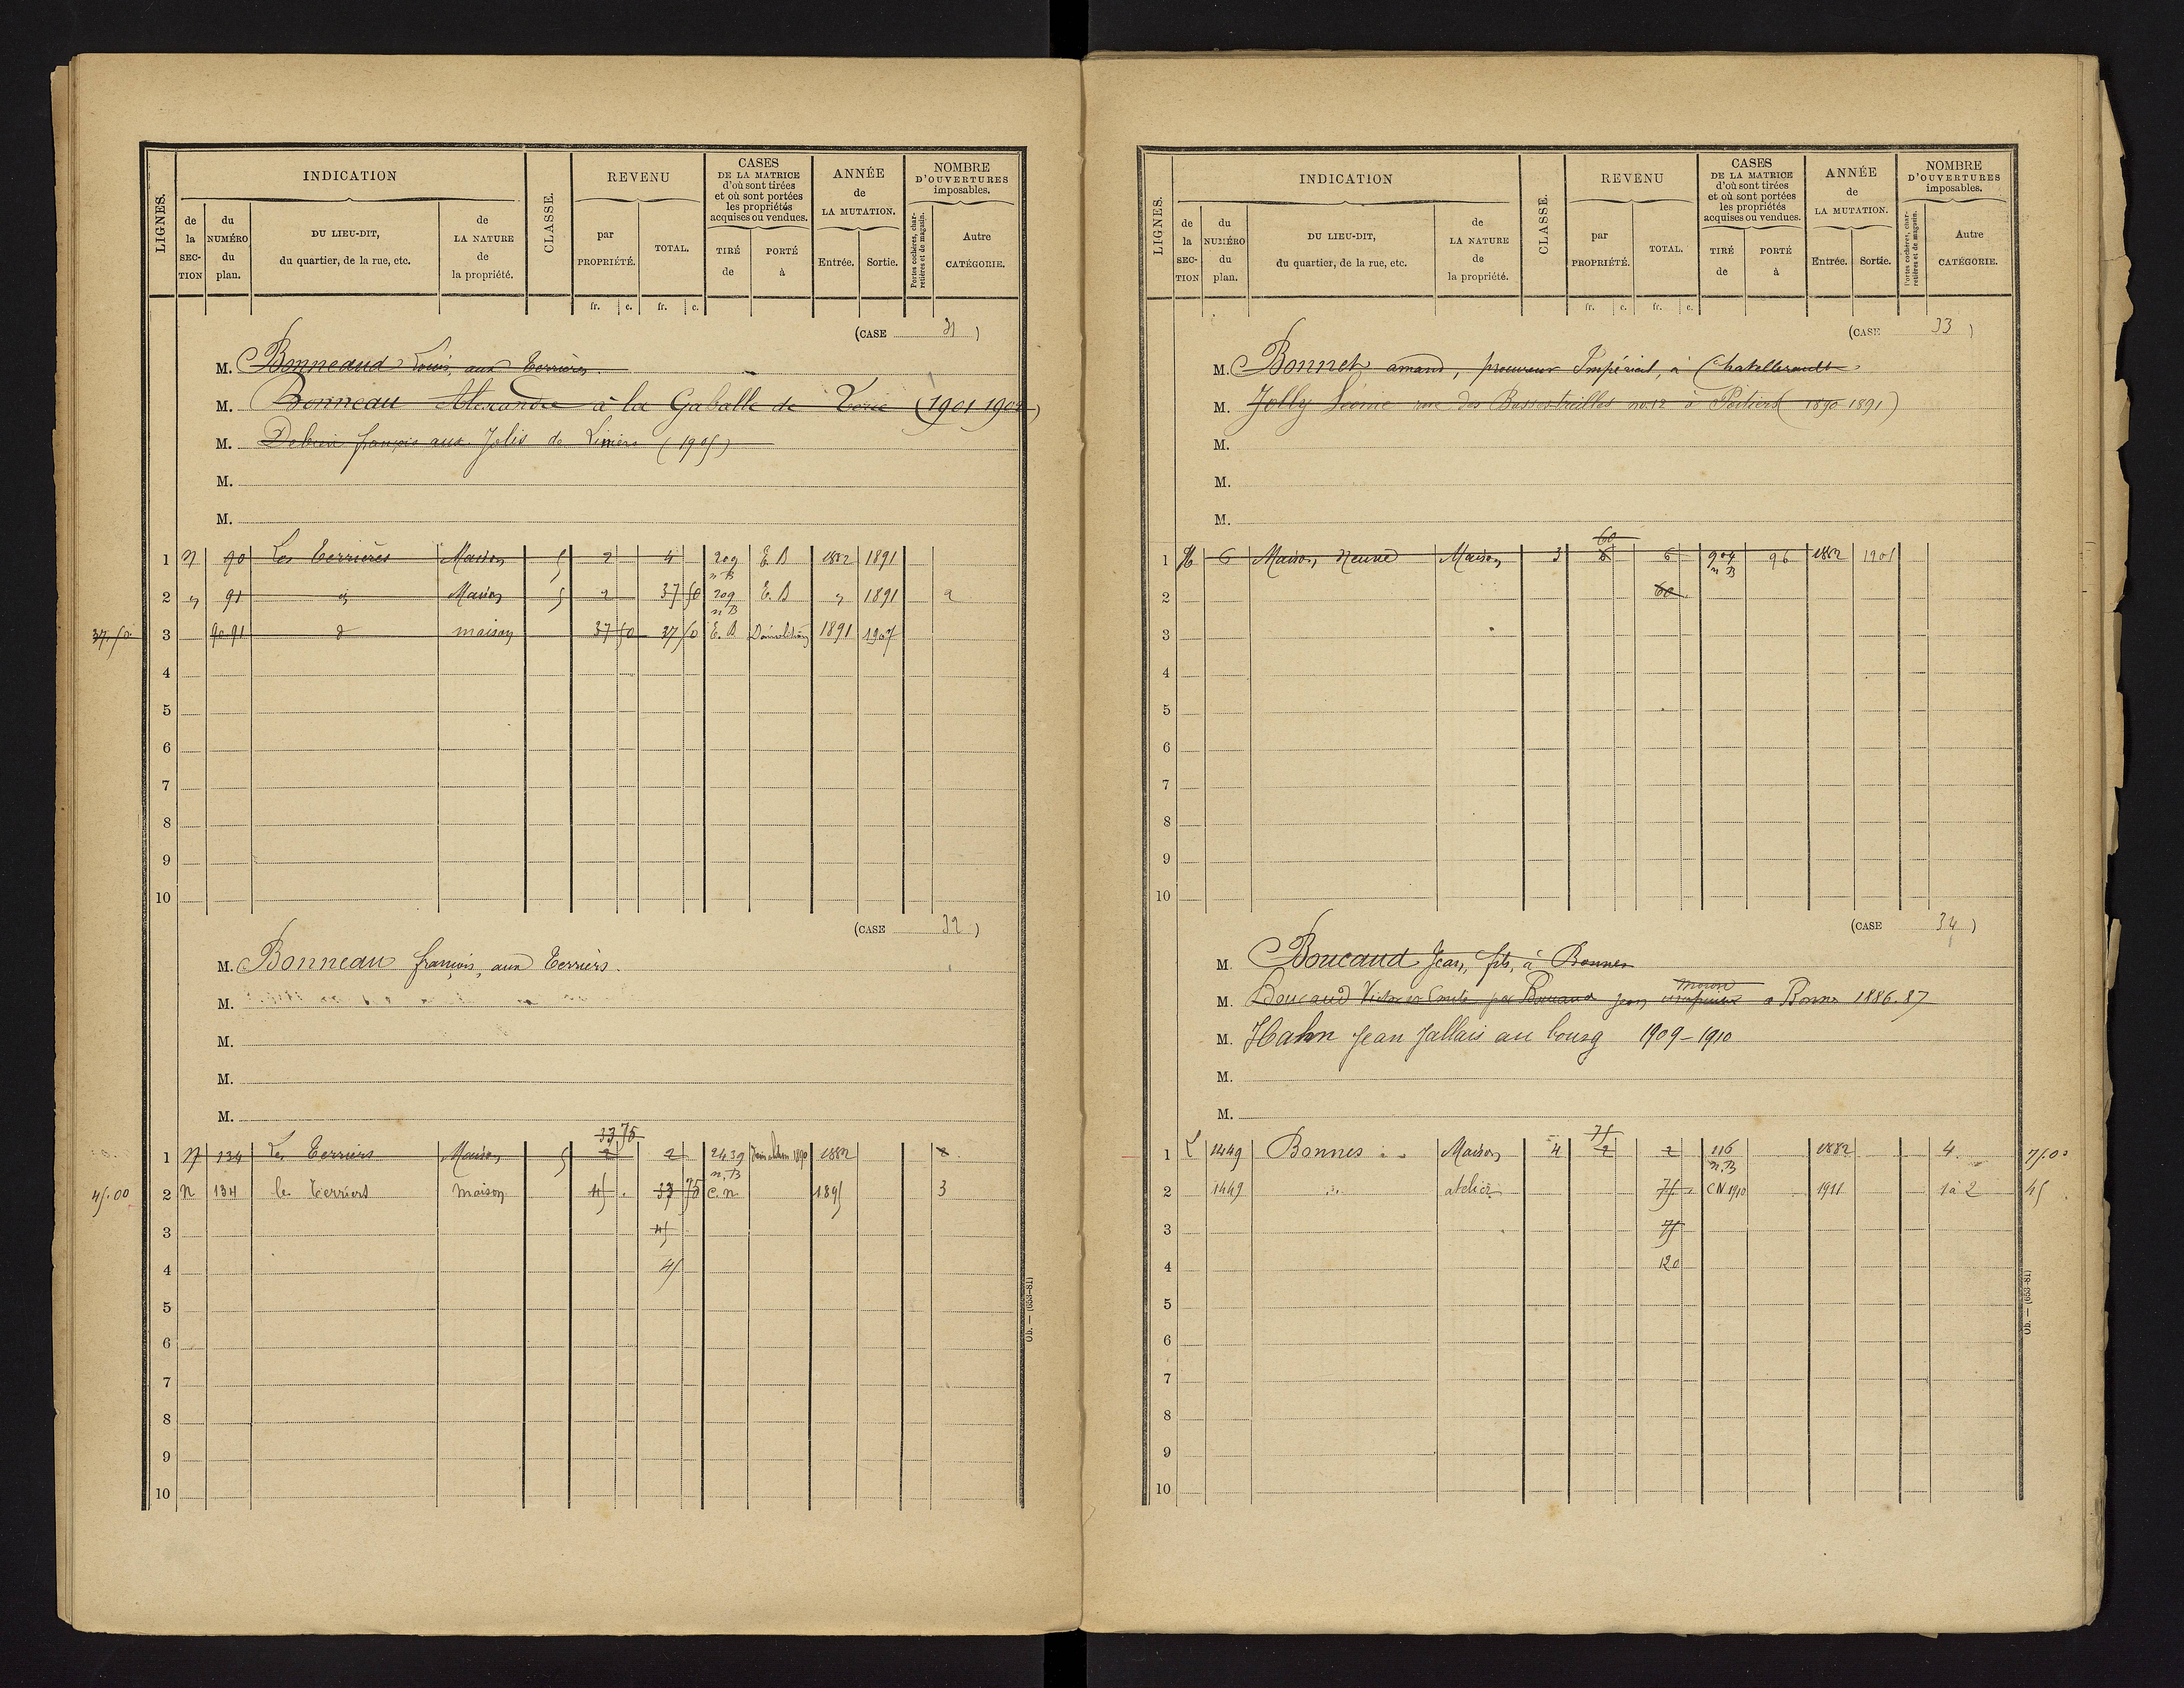 LIGNES.
INDICATION
de la SECTION
du NUMÉRO du plan.
DU LIEU-DIT, du quartier, de la rue, etc.
de LA NATURE de la propriété.
CLASSE.
REVENU
par PROPRIÉTÉ.
TOTAL.
fr. c. fr. c.
CASES DE LA MATRICE d'où sont tirées et où sont portées les propriétés acquises ou vendues.
TIRÉ de
PORTÉ à
ANNÉE de LA MUTATION.
Entrée. Sortie.
NOMBRE D'OUVERTURES imposables.
Portes cochères, charretières et de magasin.
Autre CATÉGORIE.
(CASE 31)
M. Bonneaud Louis, aux Terrières.
M. Bonneau Alexandre à la Gaballe de (1901 1902)
M. françois aux Jolis de Liniers (1905)
M.
M.
1 N 90 Les Terrières Maison 5 2 4 209 n B E. B 1882 1891
2 " 91 id Maison 5 2 37 50 209 n B E. B " 1891 2
37.50 3 90.91 d maison 37 50 37 50 E. B Démolition 1891 1907
4
5
6
7
8
9
10
(CASE 32)
M. Bonneau françois, aux Terriers.
M.
M.
M.
M.
33 75
1 N 134 Les Terriers Maison 5 2 2 2439 n, B 1882 2
45.00 2 N 134 les Terriers maison 45 . 33 75 C. n. 1891 3
3 45
4 45
5
6
7
8
9
10
Ob. — (653-81)
LIGNES.
INDICATION
de la SECTION
du NUMÉRO du plan.
DU LIEU-DIT, du quartier, de la rue, etc.
de LA NATURE de la propriété.
CLASSE.
REVENU
par PROPRIÉTÉ.
TOTAL.
fr. c. fr. c.
CASES DE LA MATRICE d'où sont tirées et où sont portées les propriétés acquises ou vendues.
TIRÉ de
PORTÉ à
ANNÉE de LA MUTATION.
Entrée. Sortie.
NOMBRE D'OUVERTURES imposables.
Portes cochères, charretières et de magasin.
Autre CATÉGORIE.
(CASE 33)
M. Bonnet amand, procureur Impérial, à Chatellerault
M. Jolly Léonie rue des Basses treilles no 12 à Poitiers (1890-1891)
M.
M.
M.
60
1 H 6 Maison Neuve Maison 3 6 6 904 n B 96 1882 1901
2 60
3
4
5
6
7
8
9
10
(CASE 34)
M. Boucaud Jean, fils, à Bonnes
M. Boucaud Victor et Emile par Boucaud Jean maçon à Bonnes 1886.87
M. Hahn Jean Jallais au bourg 1909-1910
M.
M.
75
1 L 1449 Bonnes Maison 4 2 2 116 n, B 1882 4 75.00
2 1449 " atelier 75 CN 1910 1911 1 à 2 45
3 75
4 120
5
6
7
8
9
10
Ob. — (653-81)